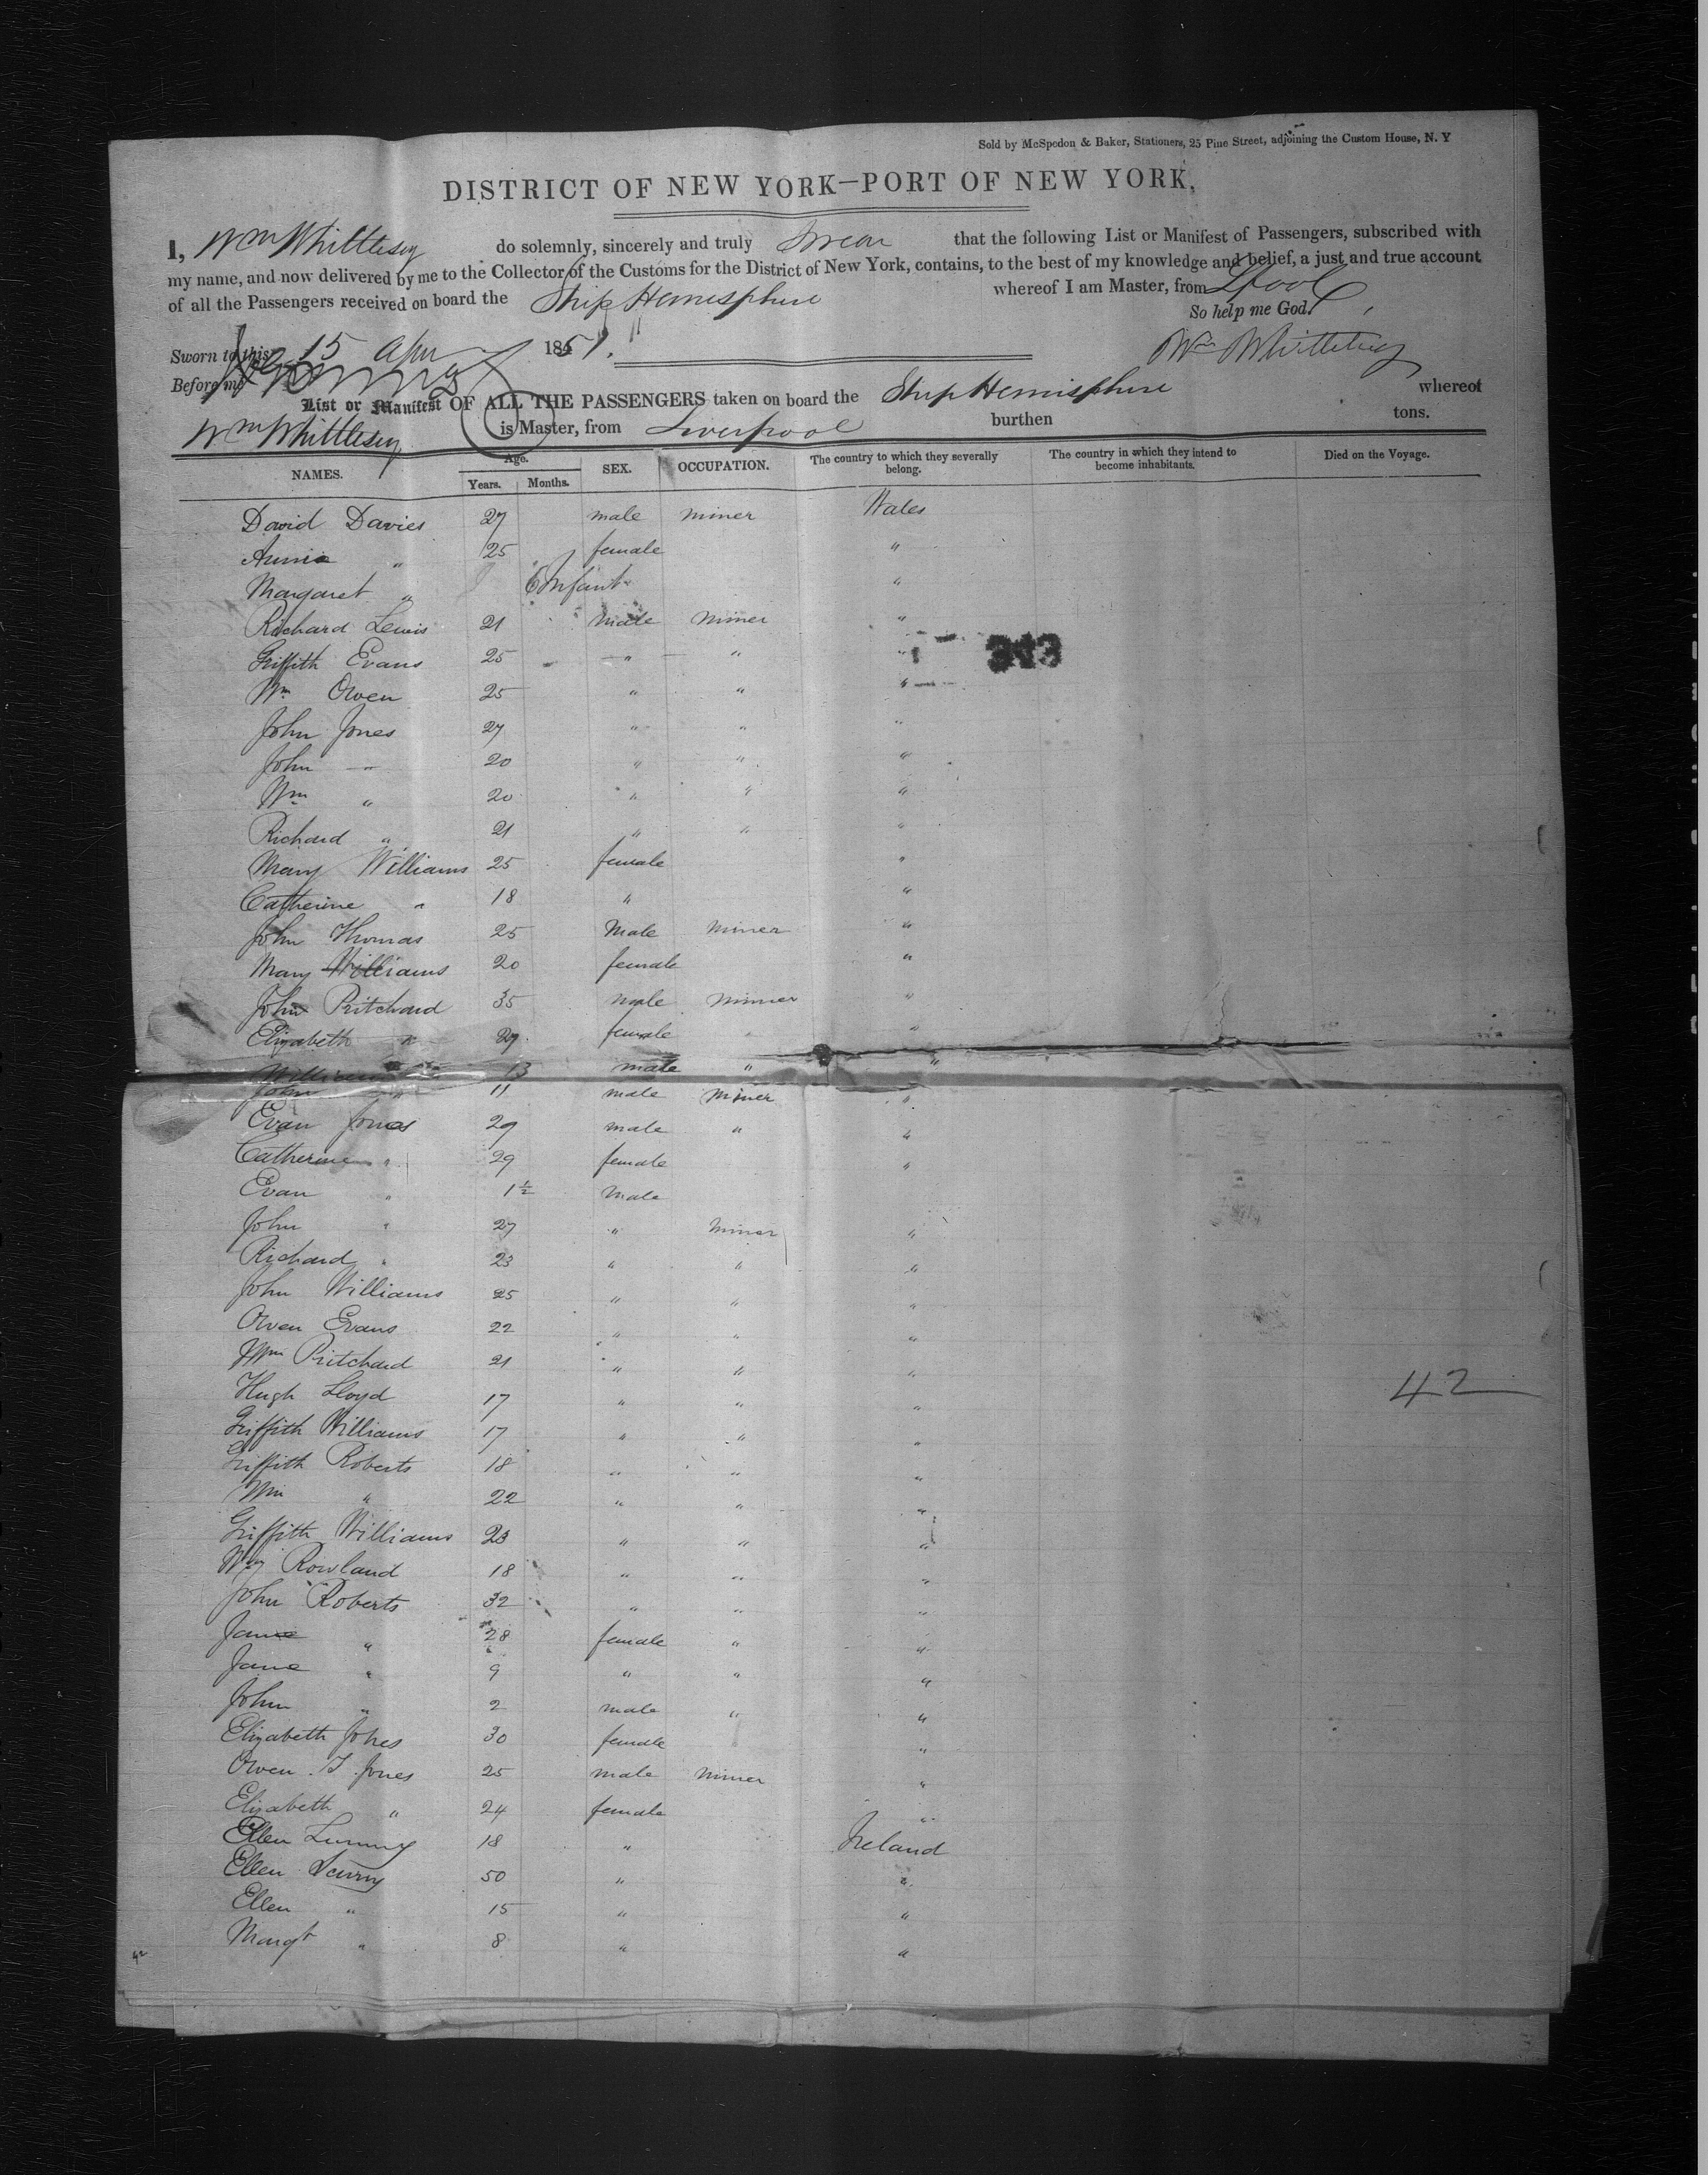 Sold by McSpedon & Baker, Stationers, 25 Pine Street, adjoining the Custom House, N. Y
DISTRICT OF NEW YORK—PORT OF NEW YORK,
I, Wm Whittlesey do solemnly, sincerely and truly Swear that the following List or Manifest of Passengers, subscribed with
my name, and now delivered by me to the Collector of the Customs for the District of New York, contains, to the best of my knowledge and belief, a just and true account
of all the Passengers received on board the Ship Hemisphere whereof I am Master, from Lpool
So help me God.
Sworn to this 15 Apr 1851.
Wm Whittlesey
Before me
List or Manifest OF ALL THE PASSENGERS taken on board the Ship Hemisphere whereof
Wm Whittlesey is Master, from Liverpool burthen tons.
NAMES. Age. Years. Months. SEX. OCCUPATION. The country to which they severally belong. The country in which they intend to become inhabitants. Died on the Voyage.
David Davies 27 male miner Wales
Annie " 25 female "
Margaret " 6 Infant "
Richard Lewis 21 male miner "
Griffith Evans 25 " " "
343
Wm Owen 25 " " "
John Jones 27 " " "
John " 20 " " "
Wm " 20 " " "
Richard " 21 " " "
Mary Williams 25 female "
Catherine " 18 " "
John Thomas 25 Male miner "
Mary Williams 20 female "
John Pritchard 35 male minner "
Elizabeth " 27 female "
William " 13 male " "
John " 11 male miner "
Evan Jones 29 male " "
Catherine " 29 female "
Evan " 1½ male
John " 27 " miner "
Richard " 23 " " "
John Williams 25 " " "
Owen Evans 22 " " "
Wm Pritchard 21 " " "
Hugh Lloyd 17 " " "
42
Griffith Williams 17 " " "
Griffith Roberts 18 " " "
Wm " 22 " " "
Griffith Williams 23 " " "
Wm Rowland 18 " " "
John Roberts 32 " " "
Jane " 28 female " "
Jane " 9 " " "
John " 2 male " "
Elizabeth Jones 30 female "
Owen T. Jones 25 male miner "
Elizabeth " 24 female "
Ellen 18 " Ireland
Ellen 50 " "
Ellen " 15 " "
Margt " 8 " "
42